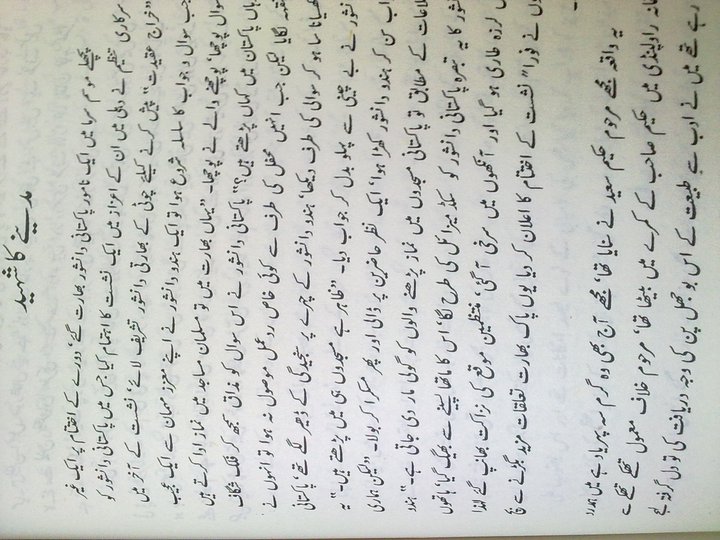 مدینے کا شہید
پچھلے موسم سرما میں ایک نامور پاکستانی دانشور بھارت گئے، دورے کے اختتام پر ایک غیر
سرکاری تنظیم نے دہلی میں ان کے اعزاز میں ایک نشست کا اہتمام کیا جس میں پاکستانی دانشور کو
"خراج عقیدت" پیش کرنے کیلئے چوٹی کے بھارتی دانشور تشریف لائے، نشست کے آخر میں
جب سوال و جواب کا سلسلہ شروع ہوا تو ایک ہندو دانشور نے اپنے معزز مہمان سے ایک عجیب
سوال پوچھا، پوچھنے والے نے پوچھا۔ "یہاں بھارت میں تو مسلمان مساجد میں نماز ادا کرتے ہیں
پاکستان میں کہاں پڑھتے ہیں؟" پاکستانی دانشور نے اس سوال کو مذاق سمجھ کر فلک شگاف
قہقہہ لگایا لیکن جب انہیں محفل کی طرف سے کوئی خاص ردعمل موصول نہ ہوا تو انہوں نے
کھسیانا سا ہو کر سوالی کی طرف دیکھا، ہندو دانشور کے چہرے پر سنجیدگی کے ڈھیر لگے تھے، پاکستانی
دانشور نے بے چینی سے پہلو بدل کر جواب دیا۔ "ظاہر ہے مسجدوں ہی میں پڑھتے ہیں۔" یہ
جواب سن کر ہندو دانشور کھڑا ہوا، ایک نظر حاضرین پر ڈالی اور پھر مسکرا کر بولا۔ "لیکن ہماری
اطلاعات کے مطابق تو پاکستانی مسجدوں میں نماز پڑھنے والوں کو گولی مار دی جاتی ہے۔" ہندو
دانشور کا یہ تبصرہ پاکستانی دانشور کو سکڈ میزائل کی طرح لگا، اس کا ماتھا پسینے سے بھیگ گیا، ہاتھوں
لرزہ طاری ہو گیا اور آنکھوں میں سرخی آ گئی، منتظمین موقع کی نزاکت بھانپ گئے لہٰذا
نے فوراً" نشست کے اختتام کا اعلان کر دیا یوں پاک بھارت تعلقات مزید بگڑنے سے
یہ واقعہ مجھے مرحوم حکیم سعید نے سنایا تھا، مجھے آج بھی وہ گرم سہ پہر یاد ہے میں ہمدرد
راولپنڈی میں حکیم صاحب کے کمرے میں بیٹھا تھا، مرحوم خلاف معمول تھکے تھکے سے
رہے تھے میں نے ادب سے طبیعت کے اس بوجھل پن کی وجہ دریافت کی تو دل گرفتہ لہجے